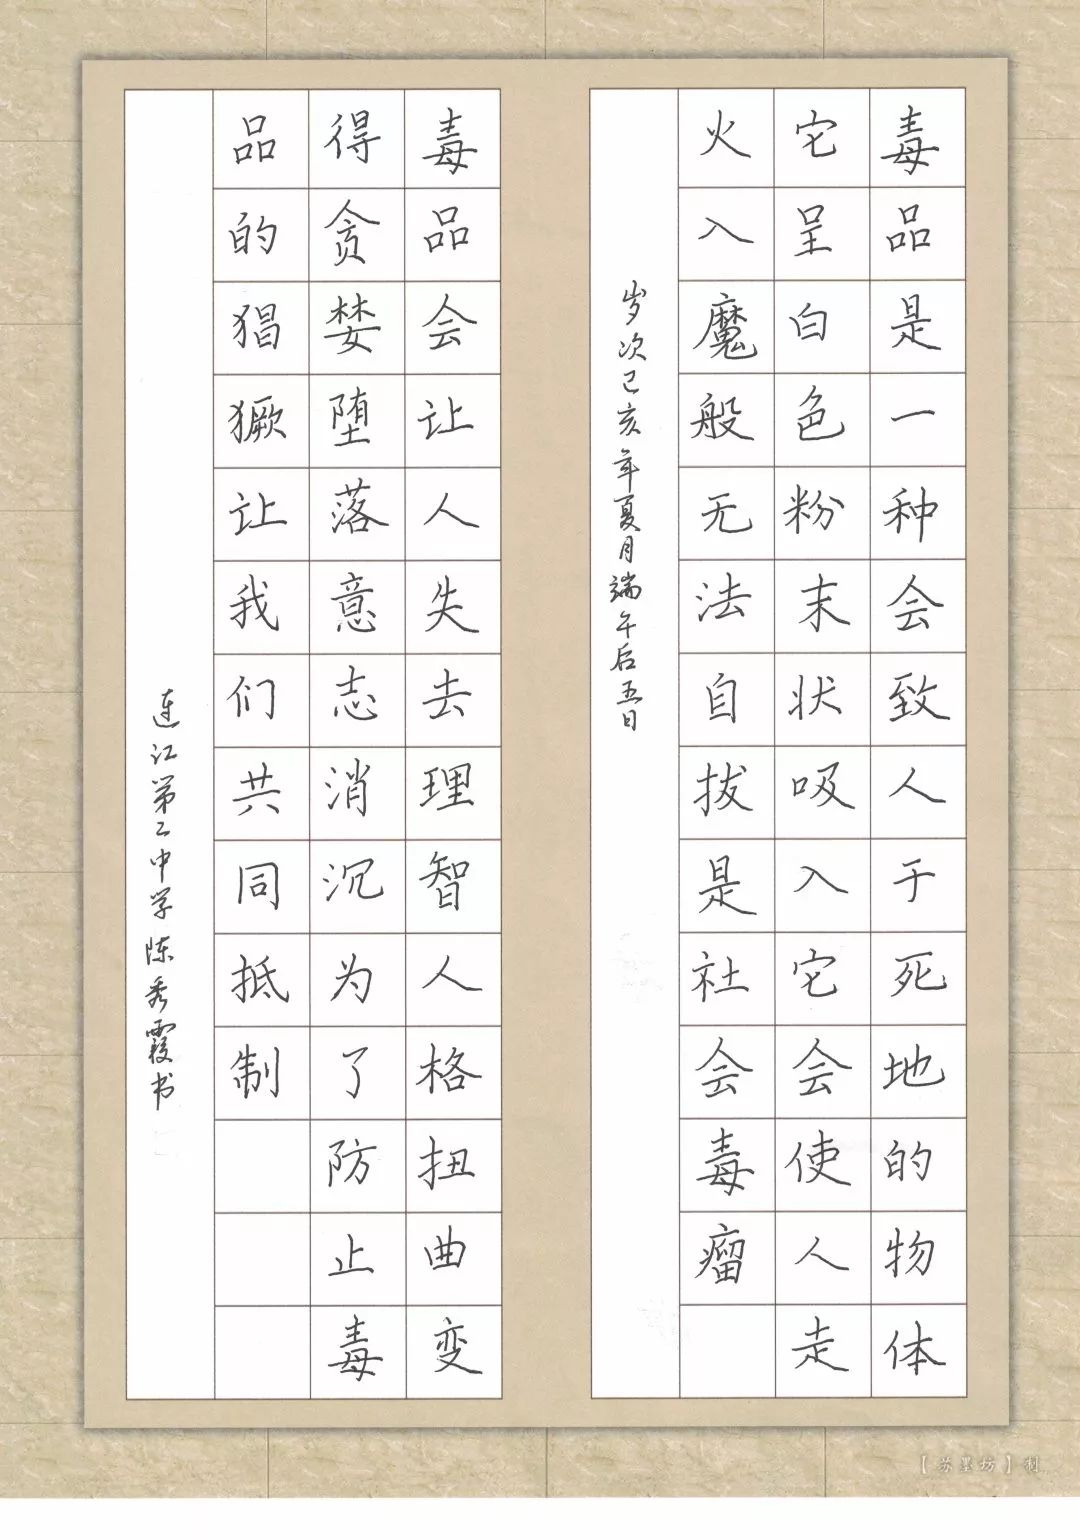 毒品是一种会致人于死地的物体
它呈白色粉末状吸入它会使人走
火入魔般无法自拔是社会毒瘤
岁次己亥年夏月端午后五日
毒品会让人失去理智人格扭曲变
得贪婪堕落意志消沉为了防止毒
品的猖獗让我们共同抵制
连江第二中学陈秀霞书
【苏墨坊】制